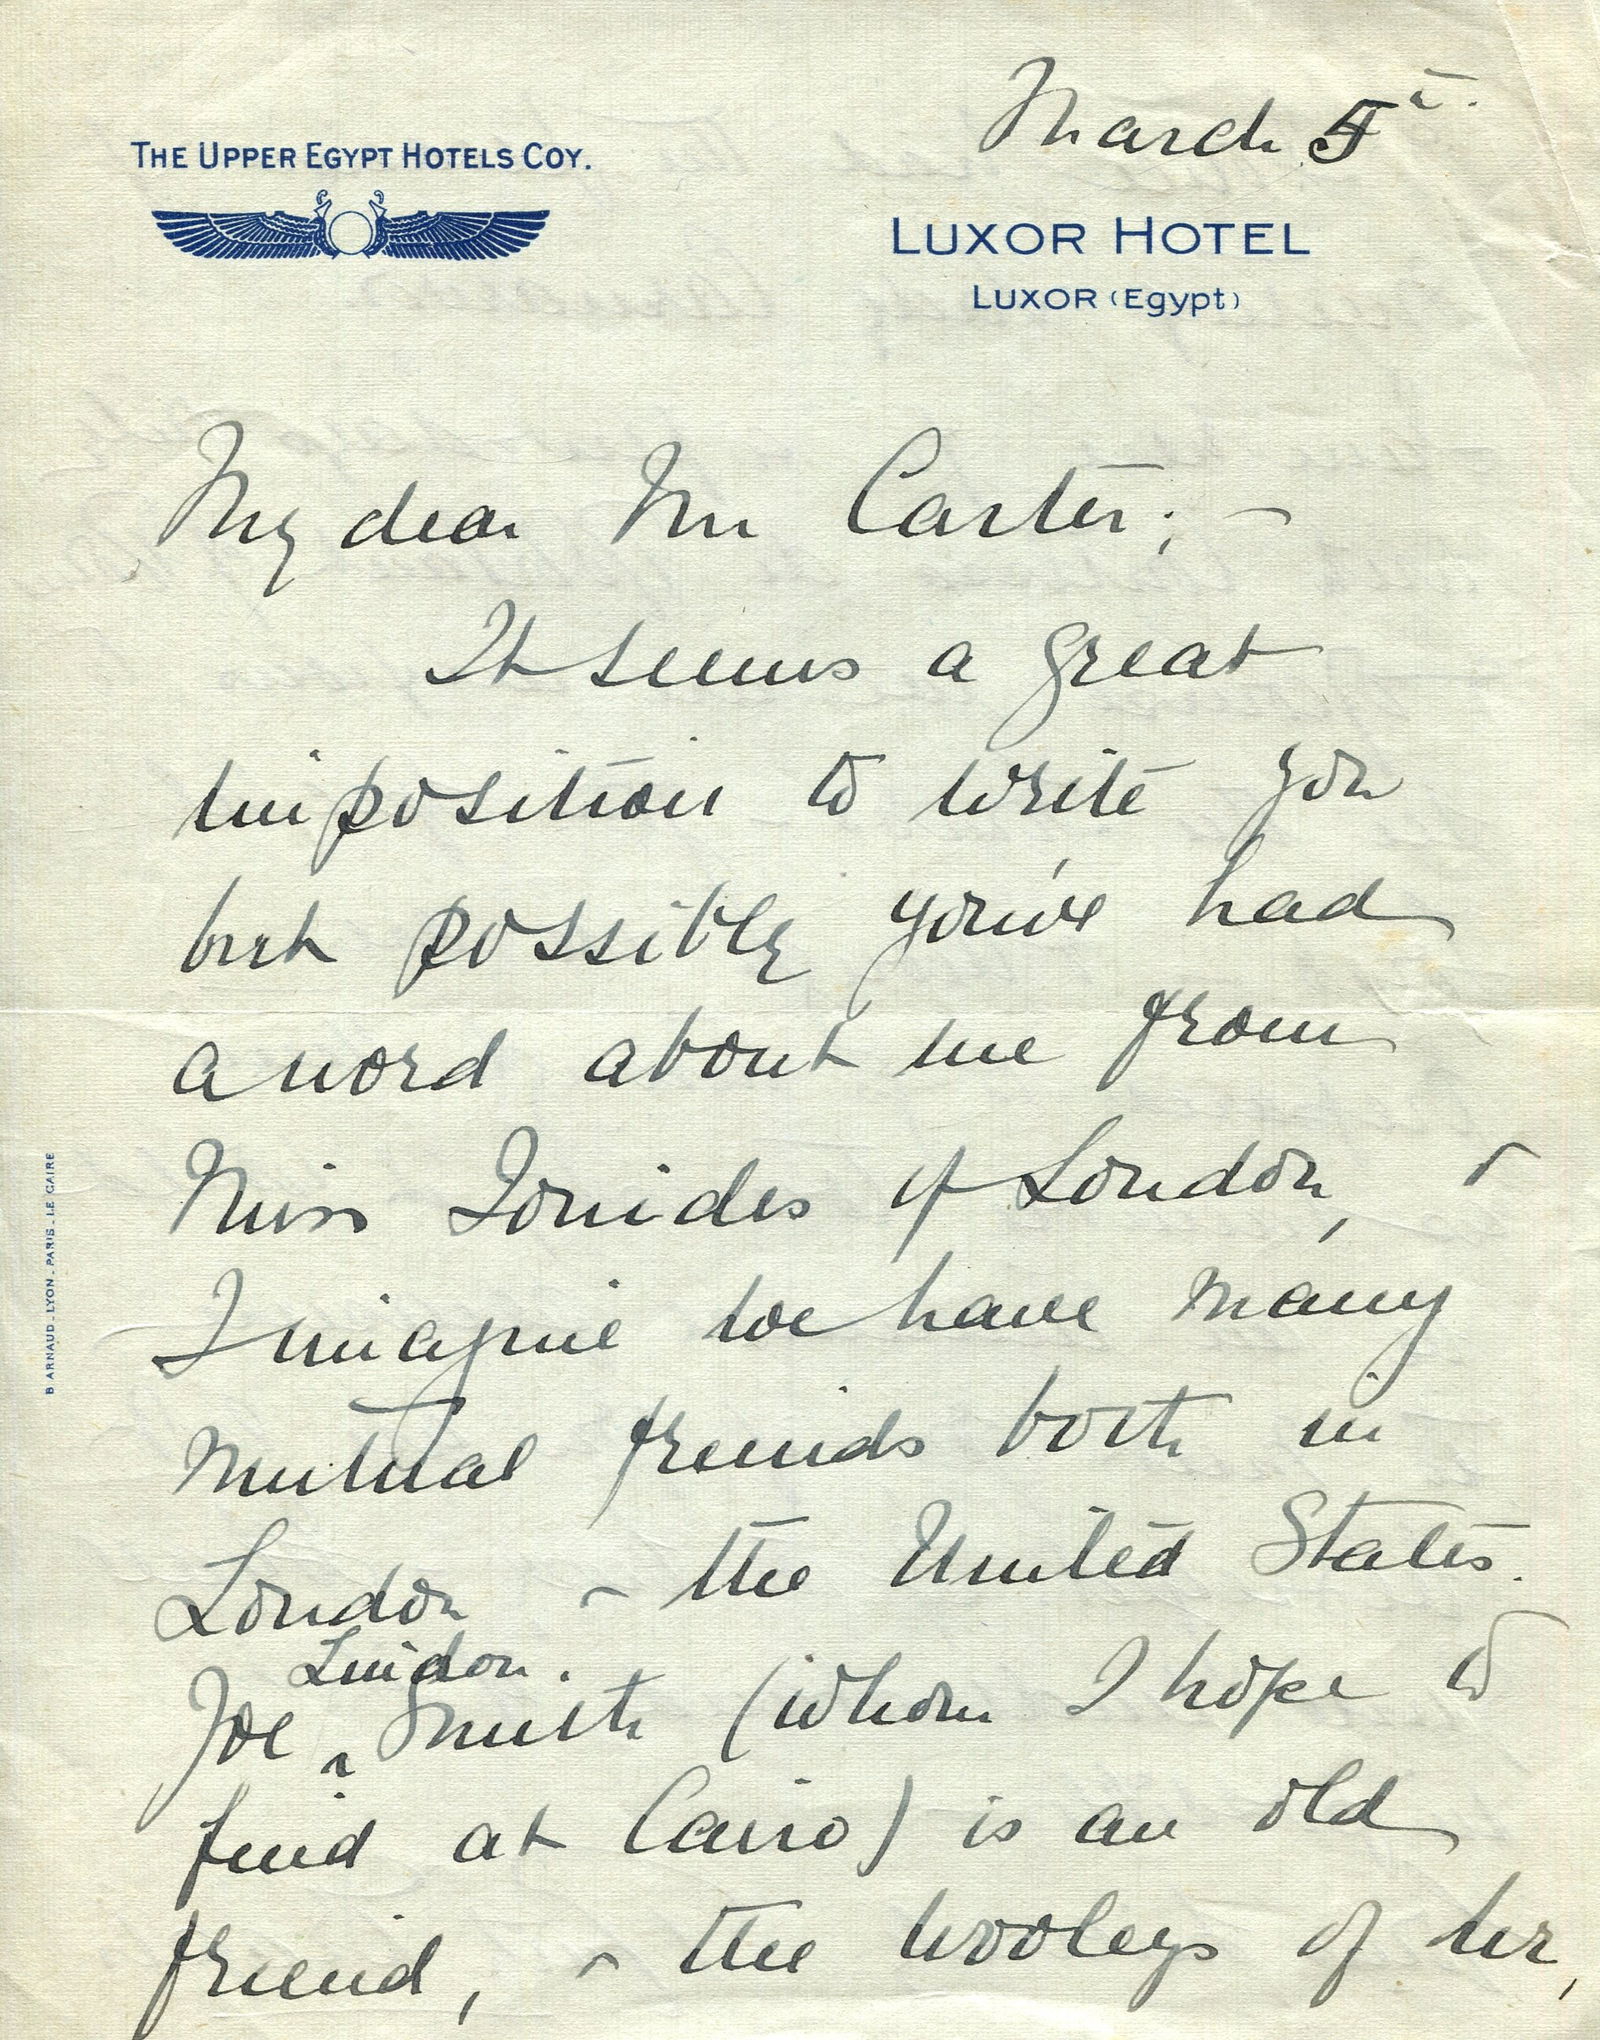 March 5th.
THE UPPER EGYPT HOTELS COY.
LUXOR HOTEL
LUXOR (Egypt)
My dear Mr Carter; —
It seems a great
imposition to write you
but possibly you've had
a word about me from
Miss Ionides of London, &
I imagine we have many
mutual friends both in
London & the United States.
Lindon.
Joe ^ Smith (whom I hope to
find at Cairo) is an old
friend, & the Wooleys of Ur,
B ARNAUD _ LYON _ PARIS _ LE CAIRE